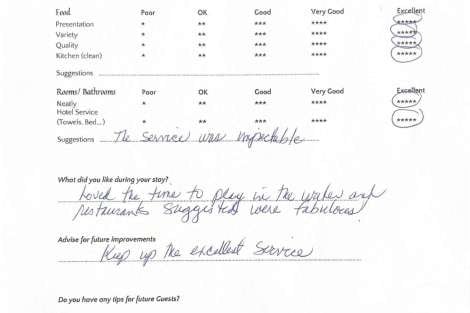 Food Poor OK Good Very Good Excellent
Presentation * ** *** **** *****
Variety * ** *** **** *****
Quality * ** *** **** *****
Kitchen (clean) * ** *** **** *****
Suggestions
Rooms/ Bathrooms Poor OK Good Very Good Excellent
Neatly * ** *** **** *****
Hotel Service
(Towels, Bed...) * ** *** **** *****
Suggestions The service was impectable
What did you like during your stay?
Loved the time to play in the water and
restaurants suggested were fabulous
Advise for future improvements
Keep up the excellent service
Do you have any tips for future Guests?